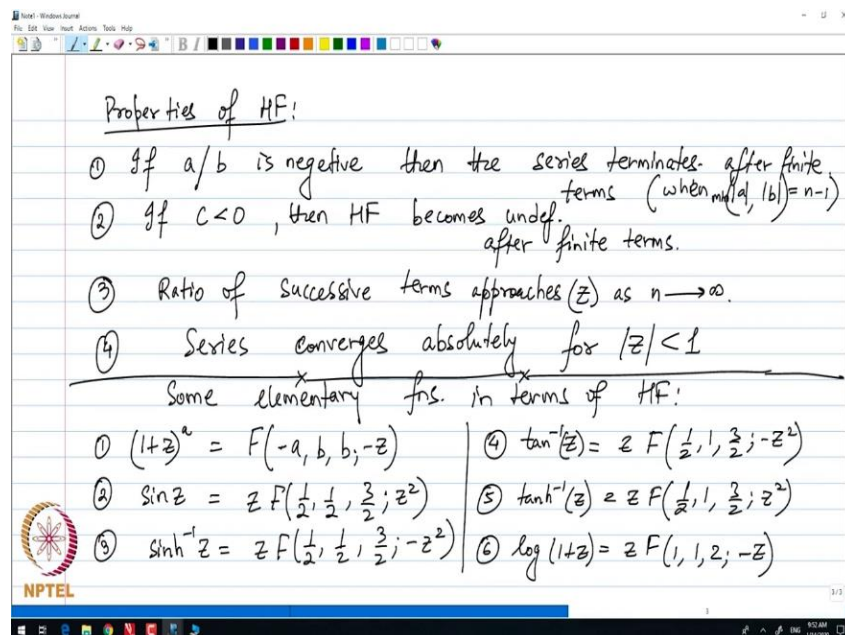 Note1 - Windows Journal
File Edit View Insert Actions Tools Help
B I
Properties of HF:
① If a/b is negative then the series terminates. after finite
terms (when min(|a|, |b|) = n-1)
② If C<0, then HF becomes undef.
after finite terms.
③ Ratio of successive terms approaches (z) as n → ∞.
④ Series converges absolutely for |z| < 1
Some elementary fns. in terms of HF:
① (1+z)^a = F(-a, b, b; -z)
② sin z = z F(1/2, 1/2, 3/2; z²)
③ sinh⁻¹ z = z F(1/2, 1/2, 3/2; -z²)
④ tan⁻¹(z) = z F(1/2, 1, 3/2; -z²)
⑤ tanh⁻¹(z) = z F(1/2, 1, 3/2; z²)
⑥ log (1+z) = z F(1, 1, 2; -z)
NPTEL
3/3
ENG 9:52 AM